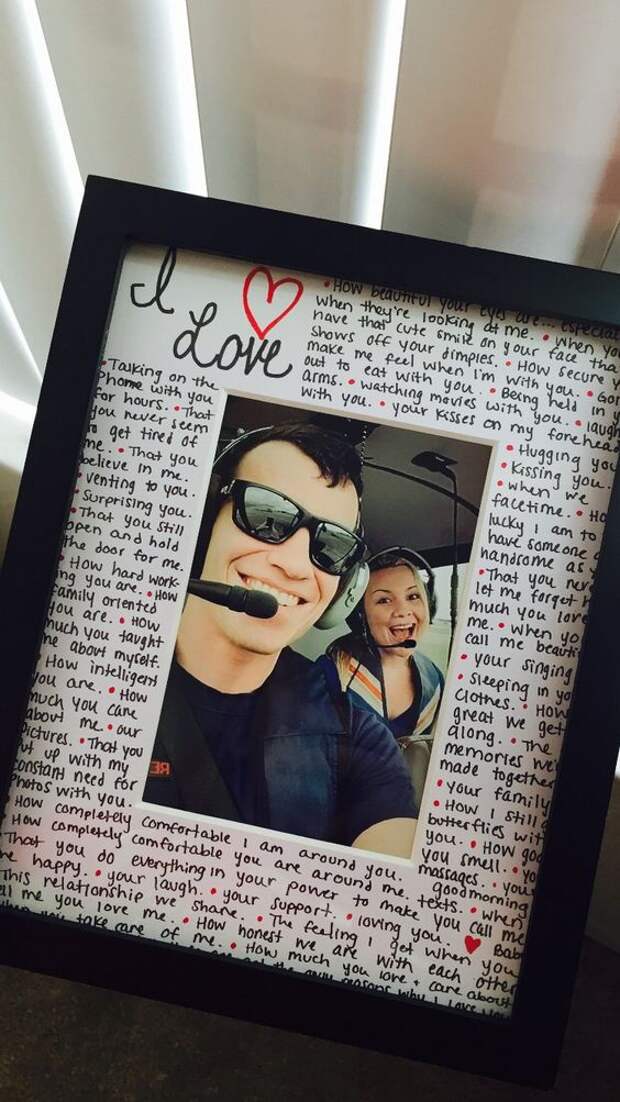 I
Love
• How beautiful your eyes are... especial
when they're looking at me. • when you
have that cute smile on your face tha
shows off your dimples. • How secure y
make me feel when I'm with you. • Goi
out to eat with you. • Being held in y
arms. • watching movies with you. • laugh
with you. • your kisses on my forehead
• Talking on the
phone with you
for hours. • That
you never seem
to get tired of
me. • That you
believe in me.
• venting to you.
• Surprising you.
• That you still
open and hold
the door for me.
• How hard work-
ing you are. • How
family oriented
you are. • How
much you taught
me about myself.
• How intelligent
you are. • How
much you care
about me. • our
pictures. • That you
put up with my
constant need for
photos with you.
• Hugging you
• Kissing you.
• when we
facetime. • Ho
lucky I am to
have someone
handsome as
• That you nev
let me forget h
much you love
me. • when yo
call me beauti
• your singing
• sleeping in yo
clothes. • How
great we get
along. • The
memories we
made together
• your family
• How I still g
butterflies wit
you. • How goo
you smell. • Yo
massages. • you
good morning
• How completely comfortable I am around you.
How completely comfortable you are around me. texts. • when
That you do everything in your power to make you call me
me happy. • your laugh. • your support. • loving you. Bab
This relationship we share. • The feeling I get when you
ll me you love me. • How honest we are with each other
when you take care of me. • How much you love + care about
reasons why I love you